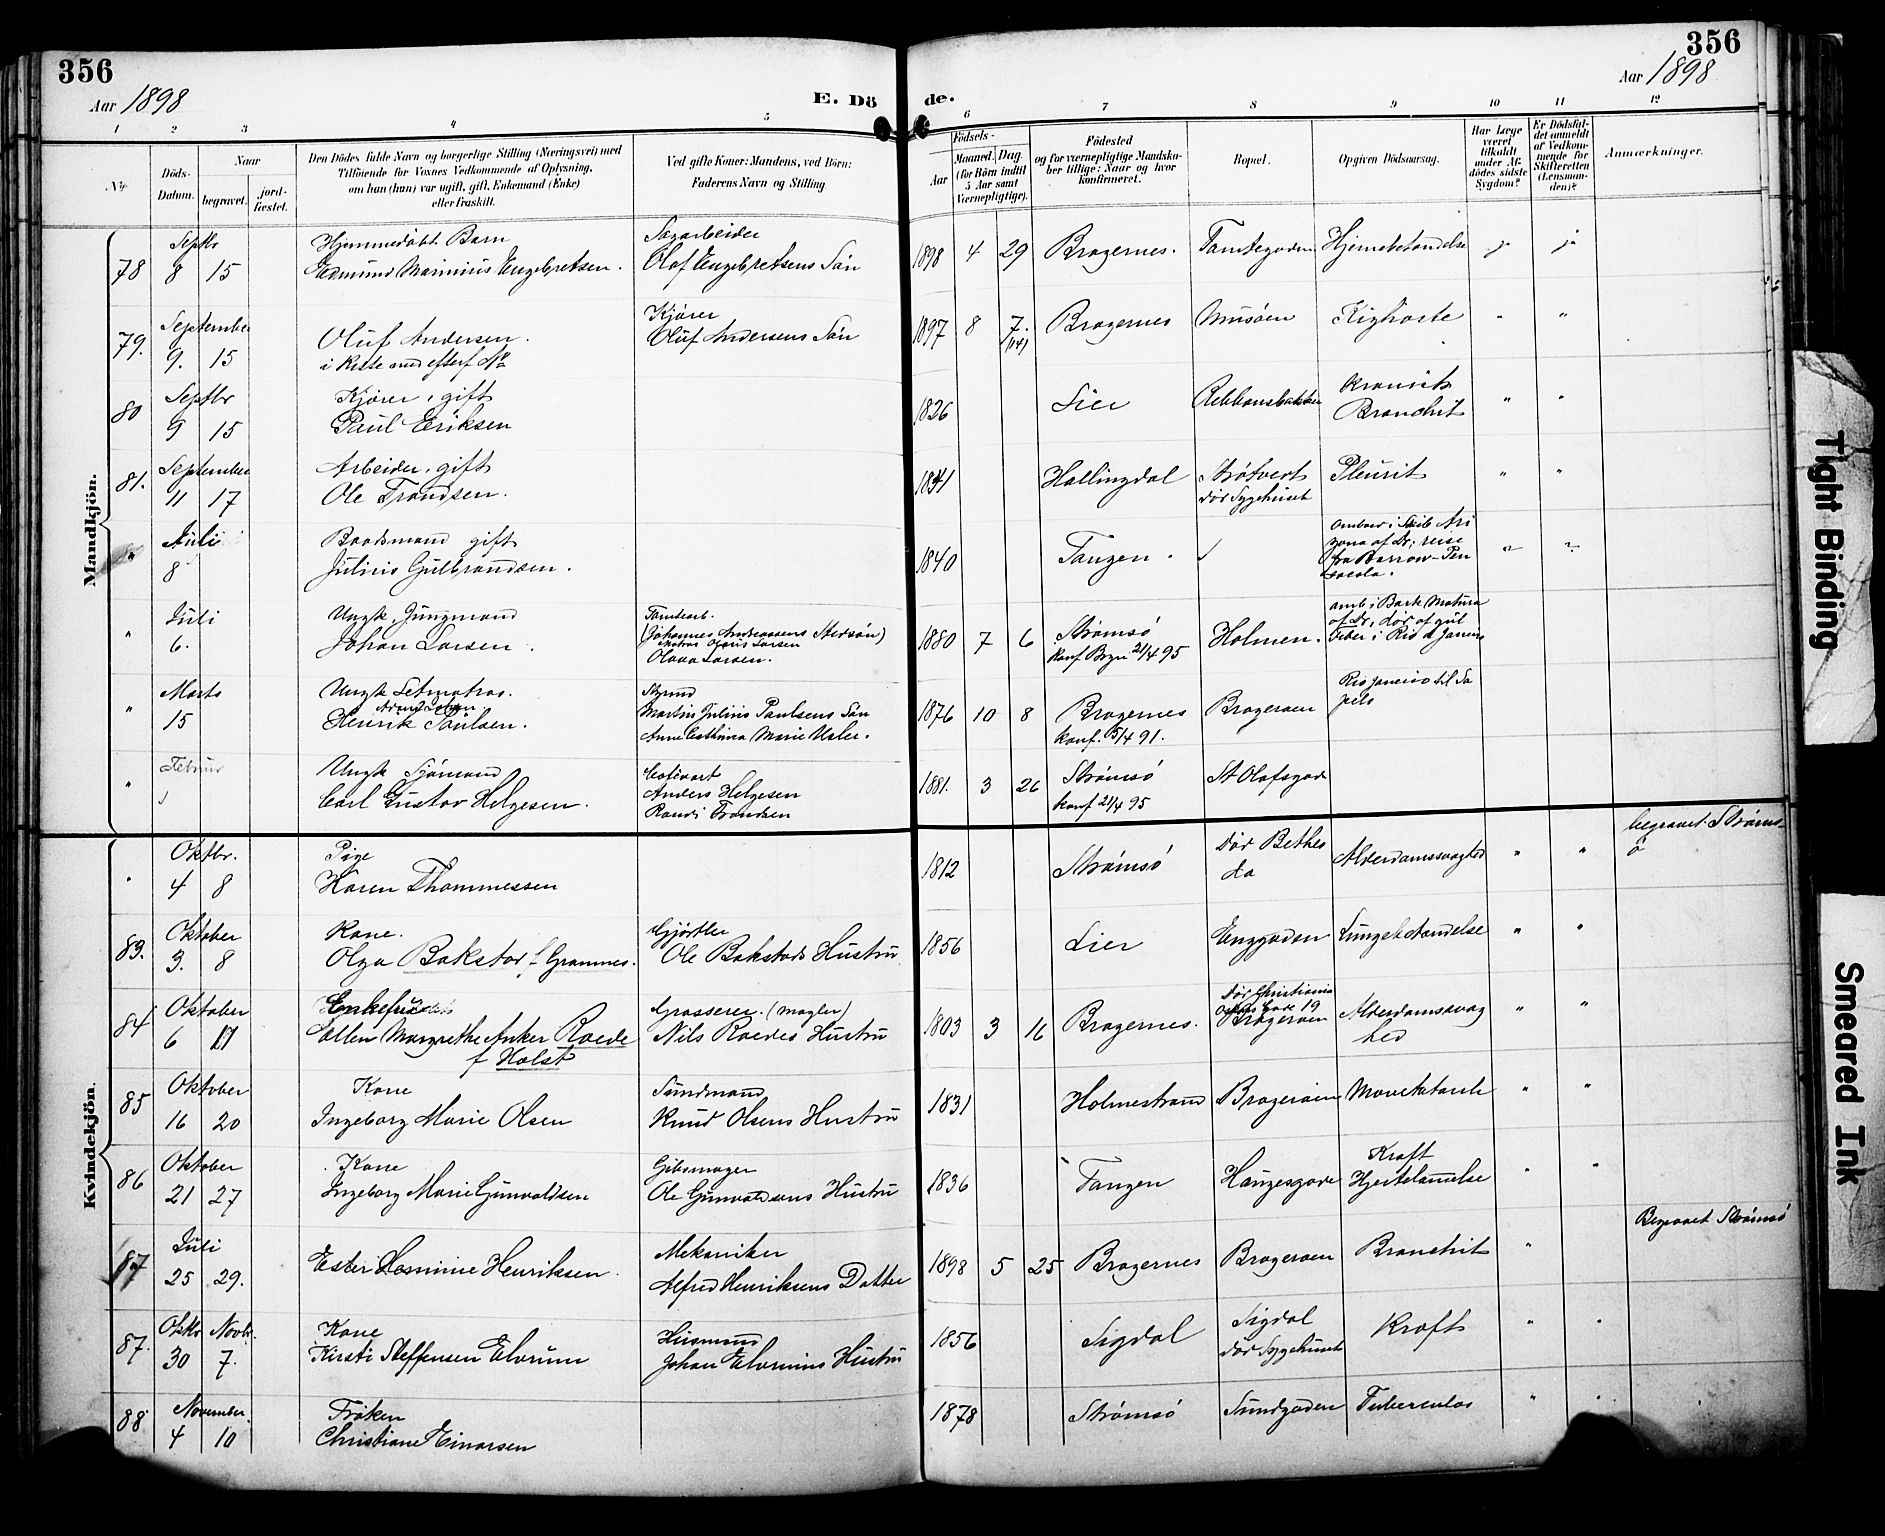 356
Aar 1898
E. Dö
de.
356
Aar 1898
1 2 3 4 5 6 7 8 9 10 11 12
No
Döds-
Datum.
Naar
begravet.
jord-
fæstet.
Den Dödes fulde Navn og borgerlige Stilling (Næringsvei) med
Tilföiende for Voxnes Vedkommende af Oplysning,
om han (hun) var ugift, gift, Enkemand (Enke)
eller fraskilt.
Ved gifte Koner: Mandens, ved Börn:
Faderens Navn og Stilling
Födsels-
Aar
Maaned. Dag
(for Börn indtil
5 Aar samt
Værnepligtige).
Födested
og for værnepligtige Mandska-
ber tillige: Naar og hvor
konfirmeret.
Bopæl.
Opgiven Dödsaarsag.
Har Læge
været
tilkaldt
under Af-
dödes sidste
Sygdom?
Er Dödsfal-
det anmeldt
af Vedkom-
mende for
Skifteretten
(Lensman-
den)?
Anmærkninger.
Mandkjön.
78 Septbr 8 15
Hjemmedöbt Barn
Edmund Marinius Engebretsen.
Sagarbeider
Olaf Engebretsens Sön
1898 4 29 Bragernes. Tomtegaden Hjernebetændelse j j
79. September 9. 15
Oluf Andersen.
i kiste med efterf No
Kjører
Oluf Andersens Sön
1897 8 7. (14) Bragernes Kighoste " "
80 Septbr 9 15
Kjører, gift
Paul Eriksen
1826 Lier Rebbansbakken Kronisk
Bronchit " "
81. September 11 17
Arbeider, gift
Ole Trondsen.
1841 Hallingdal
dör Sygehuset
Pleurit " "
" Juli 8
Baadsmand gift
Julius Gulbrandsen.
1840 Tangen.
ombord i Skib Ari
zona af Dr; reise
fra Barrow-Pen
sacola.
" Juli 6.
Ungk. Jungmand
Johan Larsen.
Tomtearb.
(Johannes Andreassens Stedsön)
Matros Olaus Larsen
Olava Larsen.
1880 7 6 Strømsö
konf Brgn 21/4 95
Holmen.
omb i Bark Matura
af Dr, dör af gul
Feber i Rio d Janeiro
" Marts 15
Ungk Letmatros.
Henrik Paulsen.
Styrmd
Martin Julius Paulsens Sön
Anne Cathrina Marie
1876 10 8 Bragernes
konf. 5/4 91.
Brageröen
Rio janeiro til Sa
" Februar
Ungk Sjömand
Carl Gustav Helgesen.
Anders Helgesen
Randi Trondsen
1881. 3 26 Strømsö
konf 21/4 95
St Olafsgade
Kvindekjön.
" Oktbr. 4 8
Pige
Karen Thommessen
1812 Strømsö
Dör Bethes
da
Alderdomssvaghed " "
begravet Strøms-
ö
83. Oktober 3. 8
Kone.
Olga Bakstad f Grannes.
Gjörtler
Ole Bakstads Hustru
1856 Lier Enggaden Lungebetændelse " "
84 Oktober 6 11
Enkefru
Ellen Margrethe Anker Roede
f Holst
Grosserer (mægler)
Nils Roedes Hustru
1803 3 16 Bragernes.
Dör Christiania
Oskars Gade 19
Brageröen
Alderdomssvag
hed " "
85 Oktober 16 20
Kone
Ingeborg Marie Olsen
Sundmand
Knud Olsens Hustru
1831 Holmestrand Brageröen Mavekatarrh " "
86 Oktober 21 27
Kone
Ingeborg Marie Gunvaldsen
Gibsmager
Ole Gunvaldsens Hustru
1836 Tangen Haugesgade Kraft
Hjertelammelse " "
87 Juli 25 29.
Ester Hermine Henriksen.
Mekaniker
Alfred Henriksens Datter
1898 5 25 Bragernes Brageröen Bronchit "
Begravet Strømsö
87. Oktbr Novbr. 30 7.
Kone
Kirsti Steffensen Elvrum
Husmand
Johan Elvrums Hustru
1856 Sigdal Sigdal
dör Sygehuset
Kraft " "
88 November 4 10
Fröken
Christiane Einarsen
1878 Strømsö Sundgaden Tuberculos " "
Tight Binding
Smeared Ink